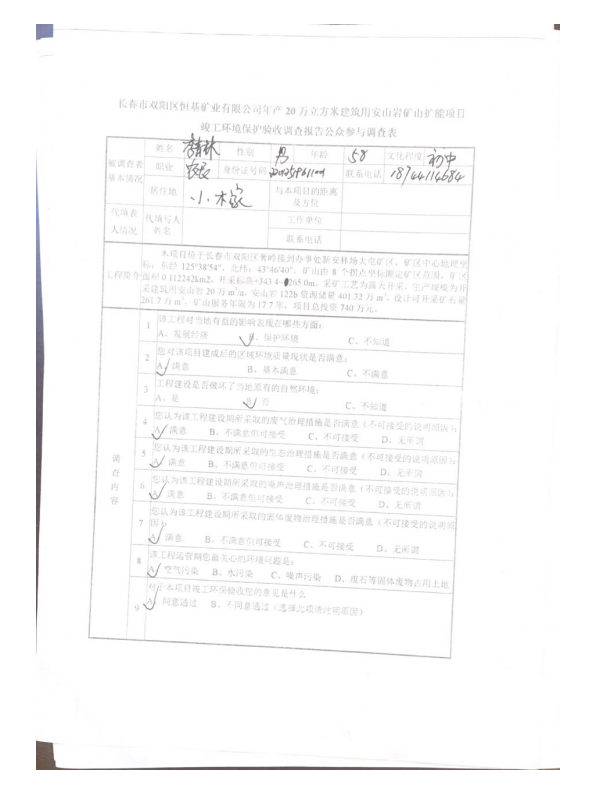 长春市双阳区恒基矿业有限公司年产 20 万立方米建筑用安山岩矿山扩能项目
竣工环境保护验收调查报告公众参与调查表
被调查者基本情况 姓名 李 林 性别 男 年龄 58 文化程度 初中
职业 农民 身份证号码 联系电话 18744114684
居住地 小 木家 与本项目的距离是方位
代填表人情况 代填写人姓名 工作单位
联系电话
工程简介 本项目位于长春市双阳区奢岭接到办事处新安林场大屯矿区,矿区中心地理坐
标:东经 125°38′54″,北纬:43°46′40″,矿山由 8 个拐点坐标圈定矿区范围,矿区
面积 0.112242km2,开采标高+343.4-+265.0m,采矿工艺为露天开采,生产规模为开
采建筑用安山岩 20 万 m³/a,安山岩 122b 资源储量 401.32 万 m³,设计可开采矿石量
261.7 万 m³,矿山服务年限为 17.7 年,项目总投资 740 万元。
调查内容
1 该工程对当地有益的影响表现在哪些方面:
A、发展经济 B、保护环境 C、不知道
2 您对该项目建成后的区域环境质量现状是否满意:
A、满意 B、基本满意 C、不满意
3 工程建设是否破坏了当地原有的自然环境:
A、是 B、否 C、不知道
4 您认为该工程建设期所采取的废气治理措施是否满意(不可接受的说明原因):
A、满意 B、不满意但可接受 C、不可接受 D、无所谓
5 您认为该工程建设期所采取的生态治理措施是否满意(不可接受的说明原因):
A、满意 B、不满意但可接受 C、不可接受 D、无所谓
6 您认为该工程建设期所采取的噪声治理措施是否满意(不可接受的说明原因):
A、满意 B、不满意但可接受 C、不可接受 D、无所谓
7 您认为该工程建设期所采取的固体废物治理措施是否满意(不可接受的说明原
因):
A、满意 B、不满意但可接受 C、不可接受 D、无所谓
8 该工程运营期您最关心的环境问题是:
A、空气污染 B、水污染 C、噪声污染 D、废石等固体废物占用土地
9 对于本项目竣工环保验收您的意见是什么
A、同意通过 B、不同意通过(选择此项请注明原因)